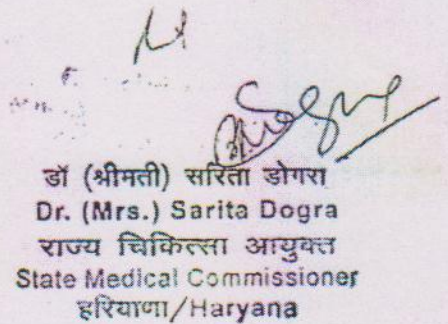 डॉ (श्रीमती) सरिता डोगरा
Dr. (Mrs.) Sarita Dogra
राज्य चिकित्सा आयुक्त
State Medical Commissioner
हरियाणा/Haryana